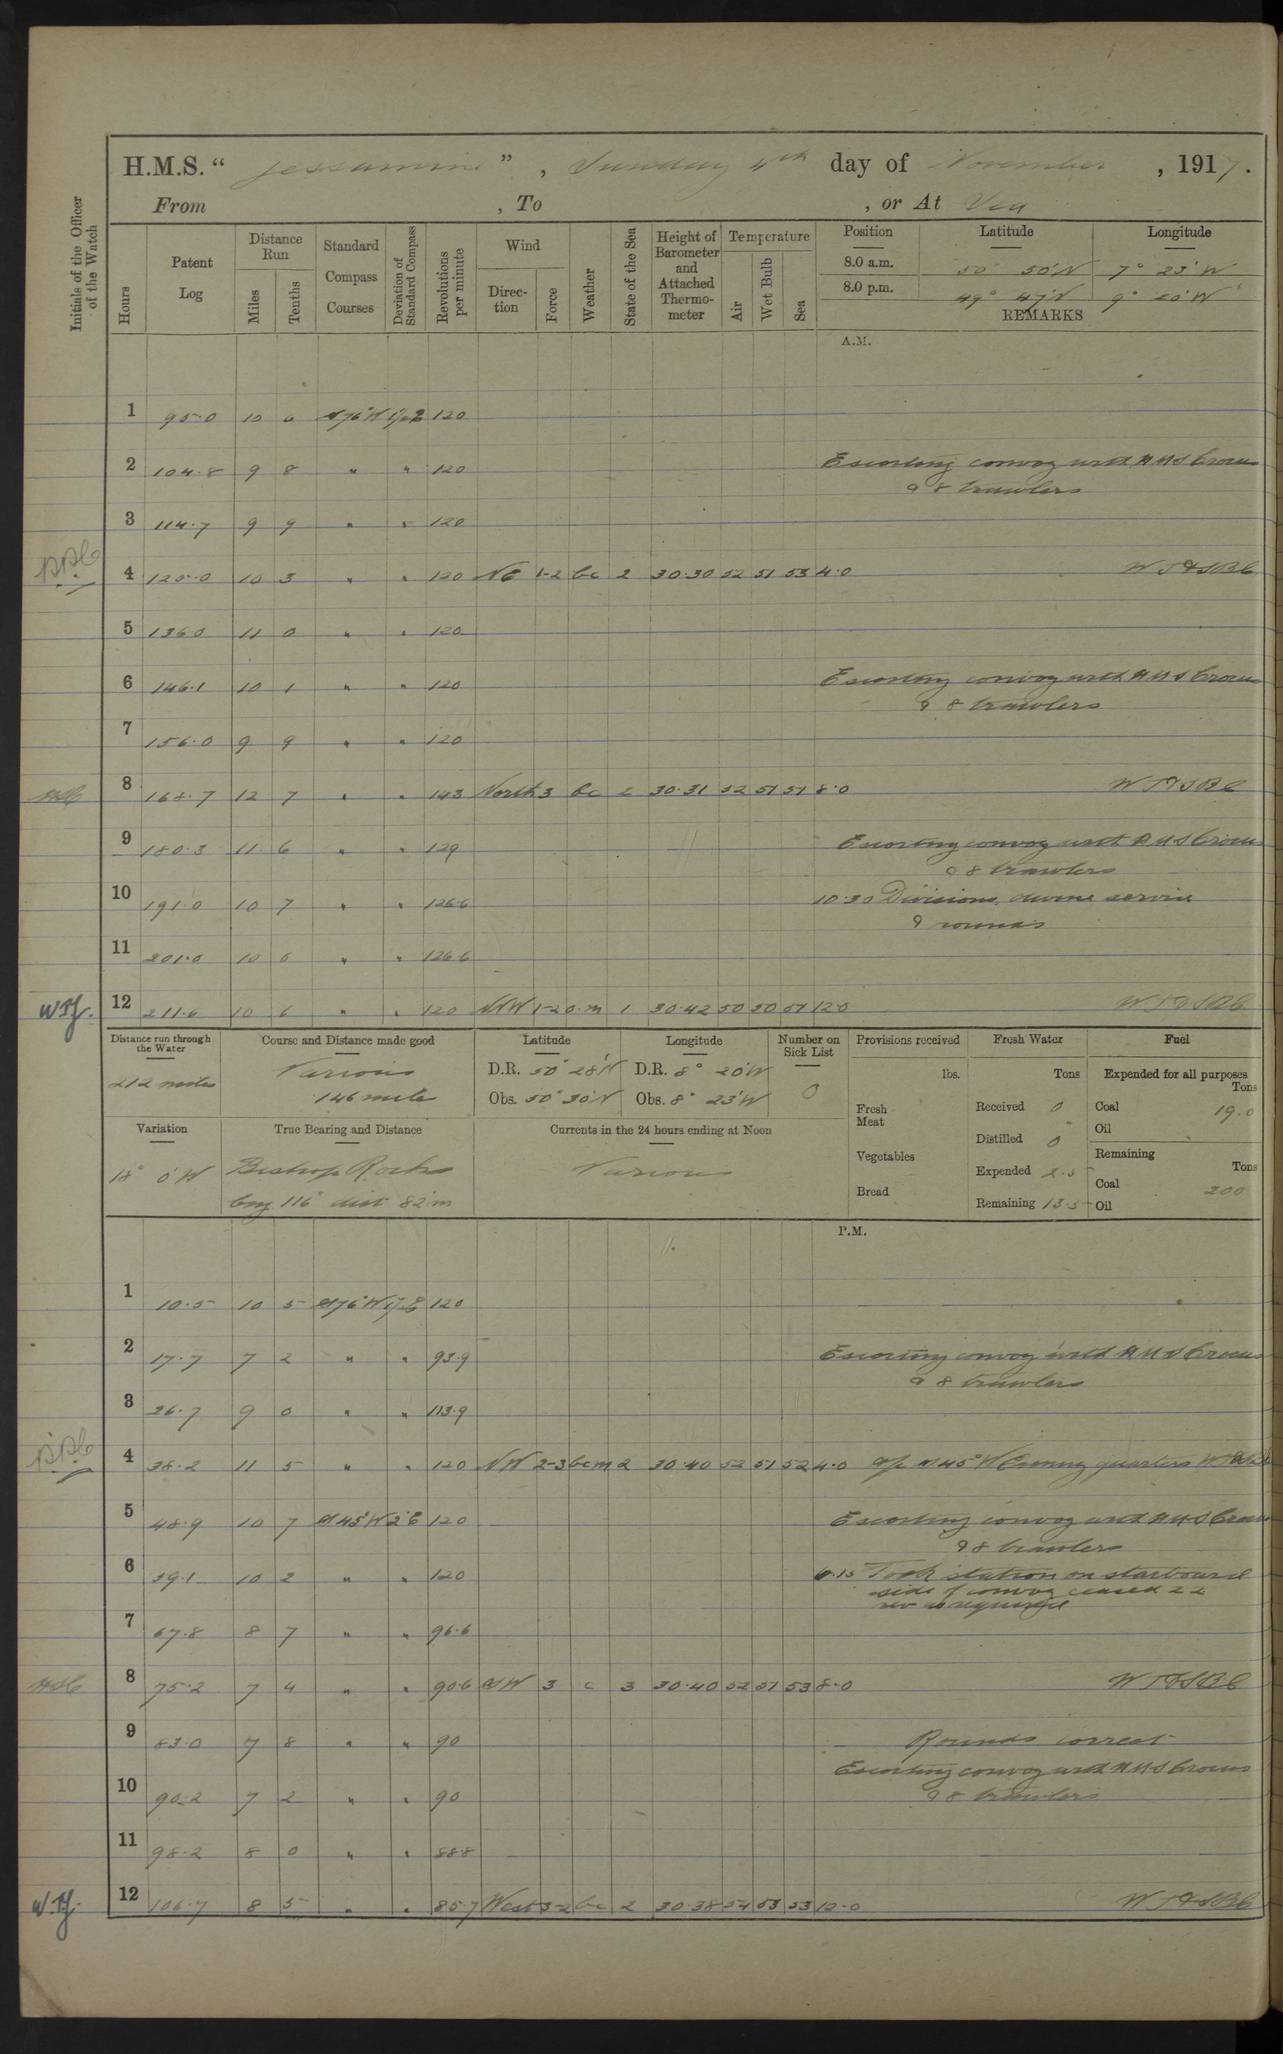 H.M.S. “ Jessamine ” , Sunday 4th day of November , 1917.
From , To , or At Sea
Initials of the Officer of the Watch
Hours
Patent Log
Distance Run
Miles
Tenths
Standard Compass Courses
Deviation of Standard Compass
Revolutions per minute
Wind
Direction
Force
Weather
State of the Sea
Height of Barometer and Attached Thermometer
Temperature
Air
Wet Bulb
Sea
Position Latitude Longitude
8.0 a.m. 50° 50'N 7° 23'W
8.0 p.m. 49° 47'N 9° 20'W
REMARKS
A.M.
1 95.0 10 0 S76°W 120
2 104.8 9 8 " " 120 Escorting convoy with HMS Crocus
& 8 trawlers
3 114.7 9 9 " " 120
4 125.0 10 3 " " 120 NE 1-2 bc 2 30.30 52 51 53 4.0
5 136.0 11 0 " " 120
6 146.1 10 1 " " 120 Escorting convoy with HMS Crocus
& 8 trawlers
7 156.0 9 9 " " 120
8 168.7 12 7 " " 143 North 3 bc 2 30.31 52 51 51 8.0
9 180.3 11 6 " " 129 Escorting convoy with HMS Crocus
& 8 trawlers
10 191.0 10 7 " " 126.6 10.30 Divisions, divine service
& rounds
11 201.0 10 0 " " 126.6
12 211.6 10 6 " " 120 NW 1-2 o.m 1 30.42 50 50 51 12.0
Distance run through the Water
212 miles
Course and Distance made good
Various
146 mile
Latitude
D.R. 50° 28'N
Obs. 50° 30'N
Longitude
D.R. 8° 20'W
Obs. 8° 23'W
Number on Sick List
0
Provisions received
lbs.
Fresh Meat
Vegetables
Bread
Fresh Water
Tons
Received 0
Distilled 0
Expended 2.5
Remaining 13.5
Fuel
Expended for all purposes
Tons
Coal 19.0
Oil
Remaining
Tons
Coal 200
Oil
Variation
18° 0'W
True Bearing and Distance
Bishop Rocks
brg 116° dist 82'm
Currents in the 24 hours ending at Noon
Various
P.M.
1 10.5 10 5 S76°W 120
2 17.7 7 2 " " 93.9 Escorting convoy with HMS Crocus
& 8 trawlers
3 26.7 9 0 " " 113.9
4 38.2 11 5 " " 120 NW 2-3 bcm 2 30.40 52 51 52 4.0 a/c S45°W Evening quarters
5 48.9 10 7 S45°W 2°E 120 Escorting convoy with HMS Crocus
& 8 trawlers
6 59.1 10 2 " " 120 6.15 Took station on starboard
side of convoy
rev as requisite
7 67.8 8 7 " " 96.6
8 75.2 7 4 " " 90.6 SW 3 c 3 30.40 52 51 53 8.0
9 83.0 7 8 " " 90 Rounds correct
Escorting convoy with HMS Crocus
10 90.2 7 2 " " 90 & 8 trawlers
11 98.2 8 0 " " 88.8
12 106.7 8 5 " " 85.7 West 3-2 bc 2 30.38 54 53 53 12.0